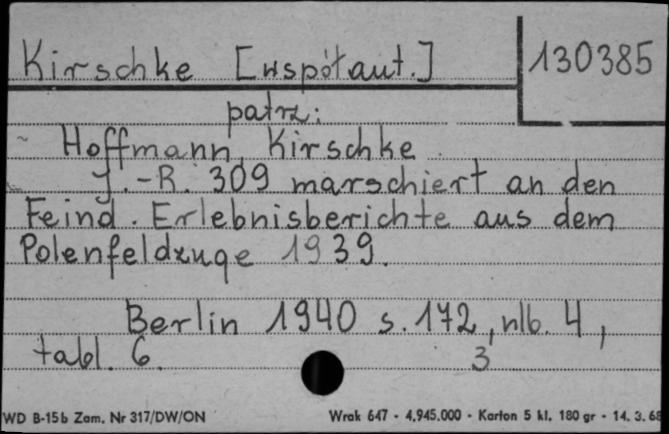 Kirschke [współaut.] 130385
patrz:
Hoffmann, Kirschke.
J.-R. 309 marschiert an den
Feind. Erlebnisberichte aus dem
Polenfeldzuge 1939.
Berlin 1940 s. 172, nlb. 4,
tabl. 6. 3
WD B-15b Zam. Nr 317/DW/ON Wrak 647 - 4.945.000 - Karton 5 kl. 180 gr - 14. 3. 68